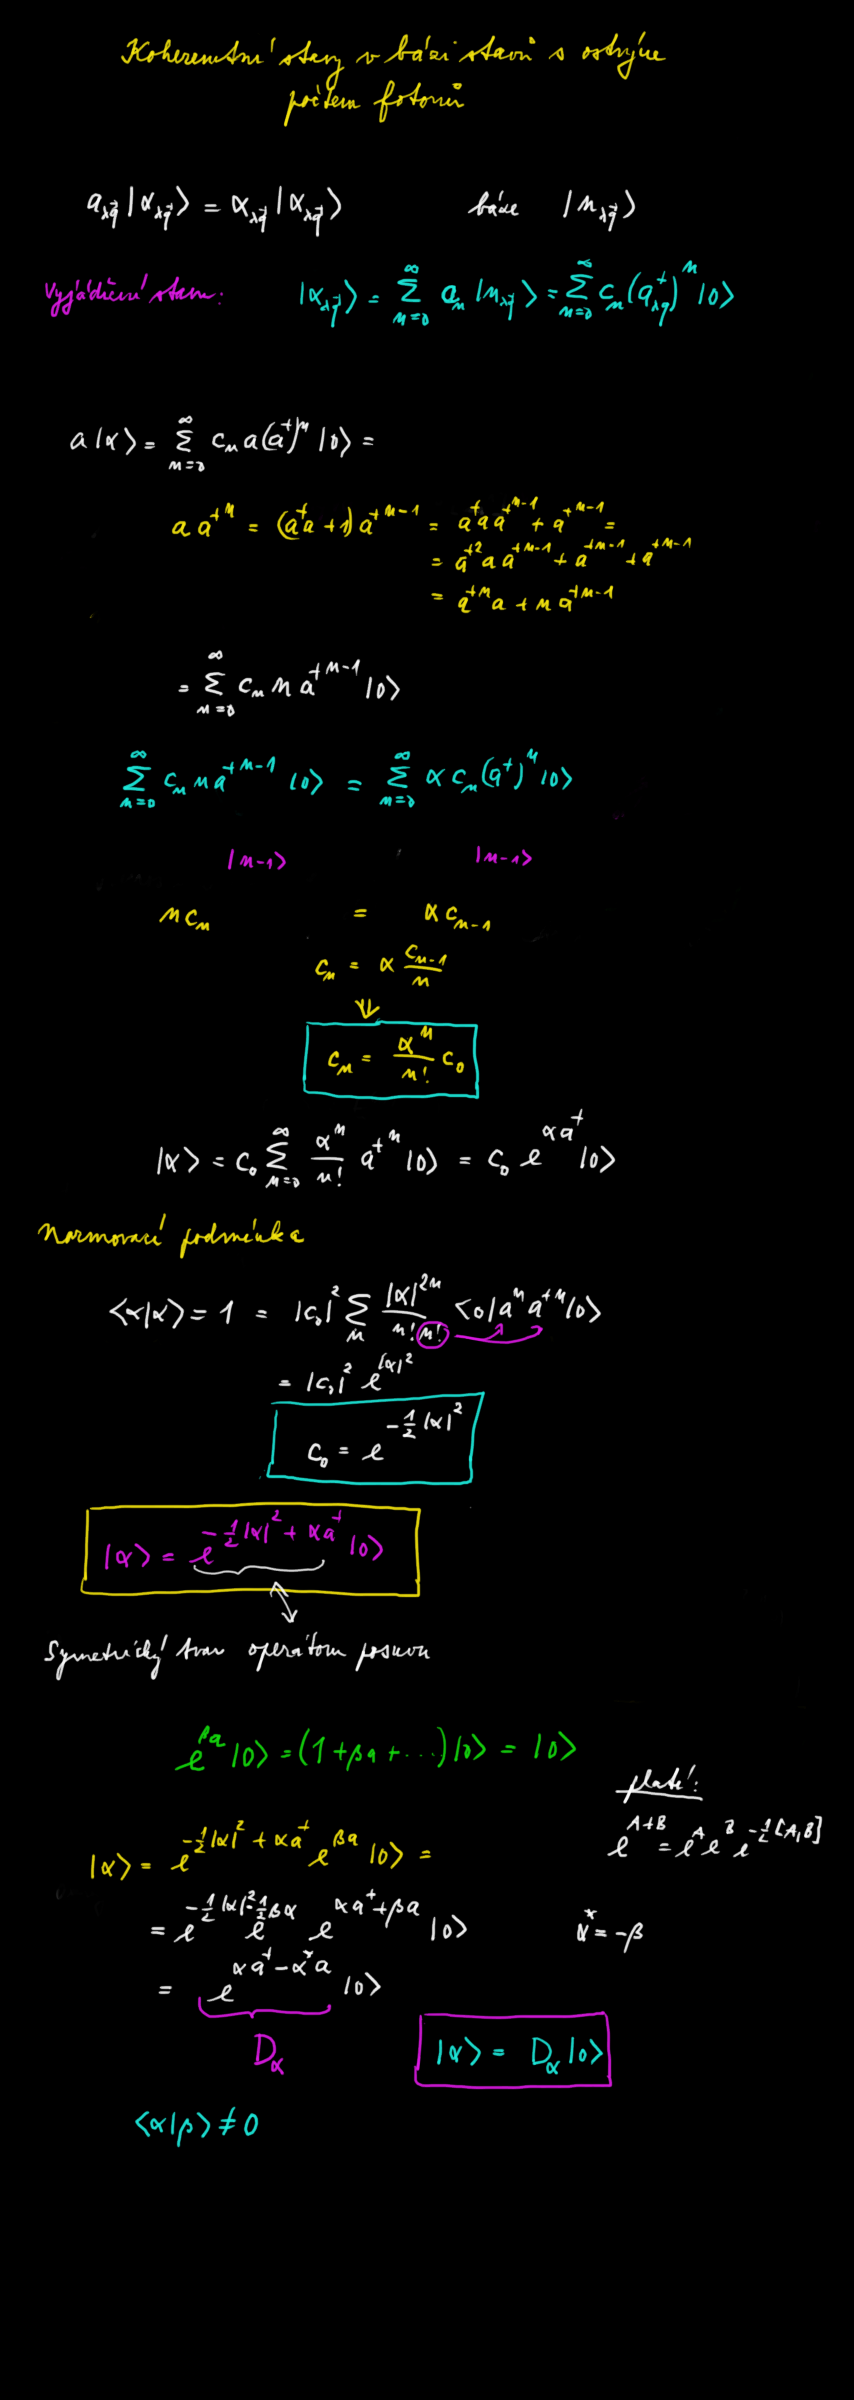 Koherentní stavy v bázi stavů s ostrým
počtem fotonů
a_{λq⃗} |α_{λq⃗}⟩ = α_{λq⃗} |α_{λq⃗}⟩ báze |n_{λq⃗}⟩
Vyjádření stavu: |α_{λq⃗}⟩ = ∑_{n=0}^{∞} a_n |n_{λq⃗}⟩ = ∑_{n=0}^{∞} c_n (a^+_{λq⃗})^n |0⟩
a|α⟩ = ∑_{n=0}^{∞} c_n a(a^+)^n |0⟩ =
a a^{+n} = (a^+a + 1) a^{+n-1} = a^+ a a^{+n-1} + a^{+n-1} =
= a^{+2} a a^{+n-1} + a^{+n-1} + a^{+n-1}
= a^{+n} a + n a^{+n-1}
= ∑_{n=0}^{∞} c_n n a^{+n-1} |0⟩
∑_{n=0}^{∞} c_n n a^{+n-1} |0⟩ = ∑_{n=0}^{∞} α c_n (a^+)^n |0⟩
|n-1⟩ |n-1⟩
n c_n = α c_{n-1}
c_n = α \frac{c_{n-1}}{n}
⇓
c_n = \frac{α^n}{n!} c_0
|α⟩ = c_0 ∑_{n=0}^{∞} \frac{α^n}{n!} a^{+n} |0⟩ = c_0 e^{αa^+} |0⟩
Normovací podmínka
⟨α|α⟩ = 1 = |c_0|^2 ∑_n \frac{|α|^{2n}}{n! n!} ⟨0|a^n a^{+n}|0⟩
= |c_0|^2 e^{|α|^2}
c_0 = e^{-\frac{1}{2}|α|^2}
|α⟩ = e^{-\frac{1}{2}|α|^2 + αa^+} |0⟩
Symetrický tvar operátoru posuvu
e^{βa} |0⟩ = (1 + βa + ...) |0⟩ = |0⟩
platí:
e^{A+B} = e^A e^B e^{-\frac{1}{2}[A,B]}
|α⟩ = e^{-\frac{1}{2}|α|^2 + αa^+} e^{βa} |0⟩ =
= e^{-\frac{1}{2}|α|^2} e^{-\frac{1}{2}βα} e^{αa^+ + βa} |0⟩ α^* = -β
= e^{αa^+ - α^*a} |0⟩
D_α |α⟩ = D_α |0⟩
⟨α|β⟩ ≠ 0